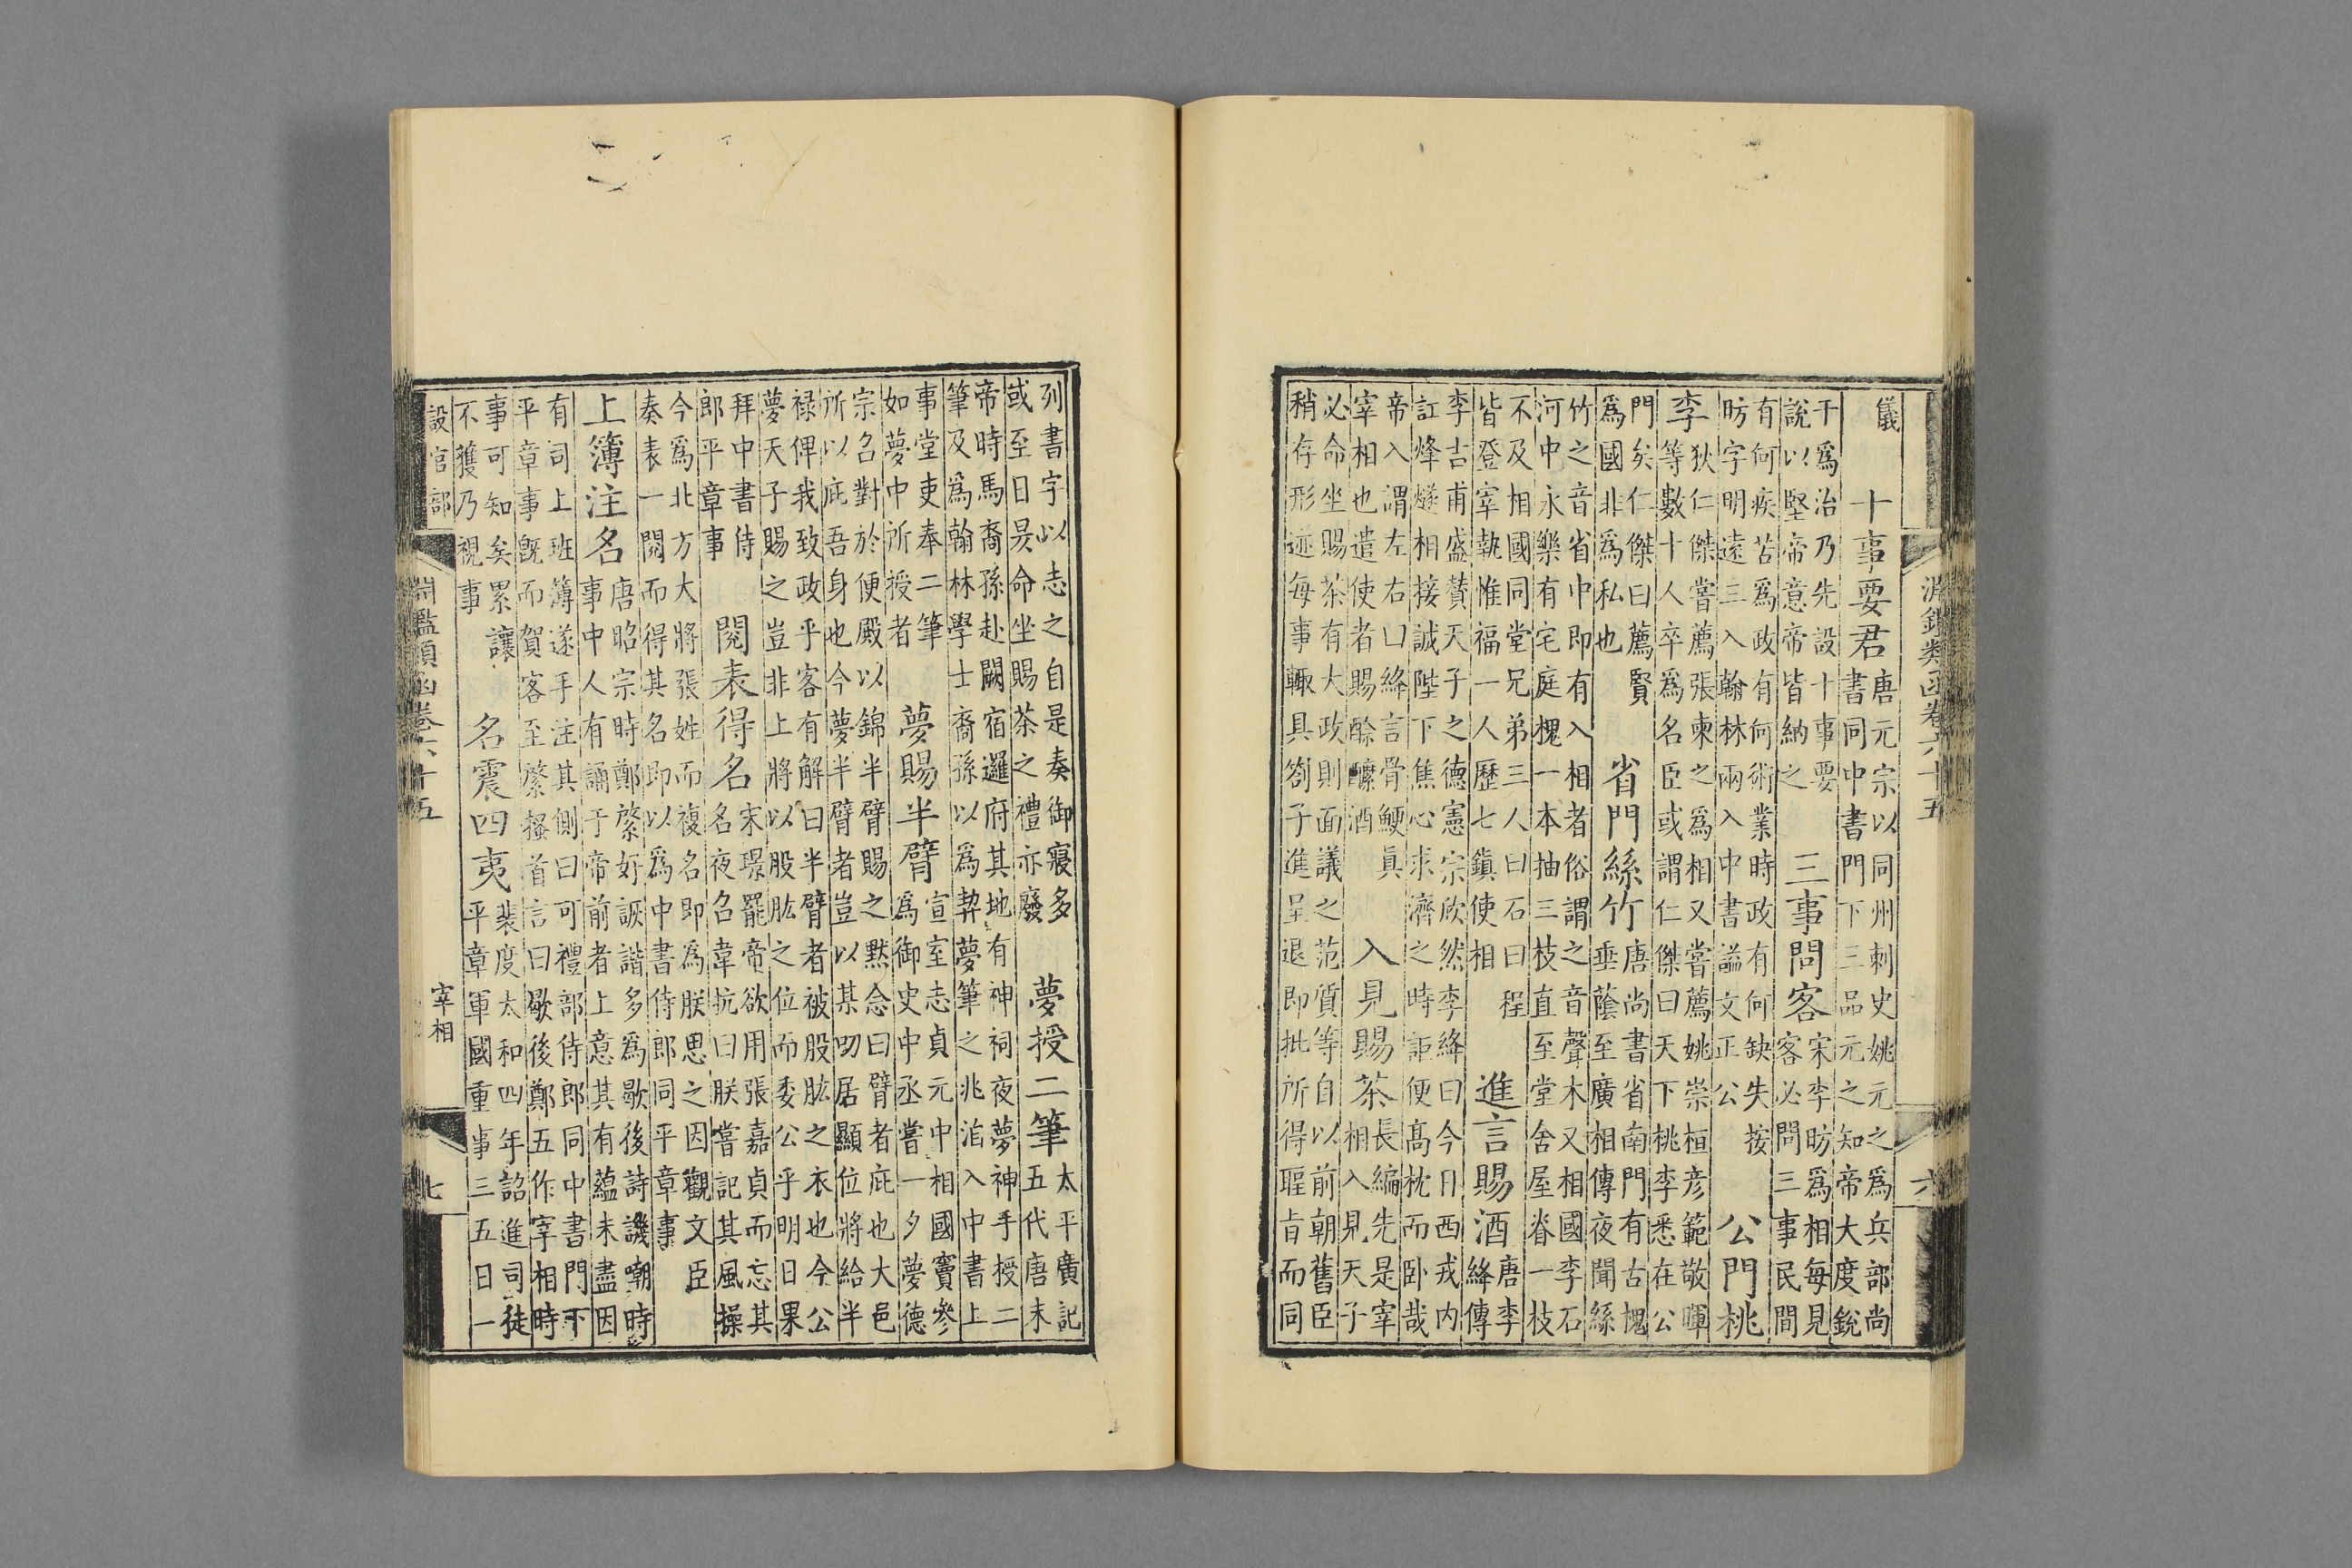 淵鑑類函卷六十五
六
儀
十事要君
唐元宗以同州刺史姚元之為兵部尚
書同中書門下三品元之知帝大度銳
干為治乃先設十事要
說以堅帝意帝皆納之
三事問客
宋李昉為相每見
客必問三事民間
有何疾苦為政有何術業時政有何缺失 按
昉字明遠三入翰林兩入中書謚文正公
公門桃
李
狄仁傑嘗薦張柬之為相又嘗薦姚崇桓彦範敬暉
等數十人卒為名臣或謂仁傑曰天下桃李悉在公
門矣仁傑曰薦賢
為國非為私也
省門絲竹
唐尚書省南門有古槐
垂蔭至廣相傳夜聞絲
竹之音省中即有入相者俗謂之音聲木又相國李石
河中永樂有宅庭槐一本抽三枝直至堂舍屋脊一枝
不及相國同堂兄弟三人曰石曰程
皆登宰執惟福一人歷七鎮使相
進言賜酒
唐李
絳傳
李吉甫盛贊天子之德憲宗欣然李絳曰今日西戎内
訌烽燧相接誠陛下焦心求濟之時詎便髙枕而卧哉
帝入謂左右曰絳言骨鯁真
宰相也遣使者賜酴醾酒
入見賜茶
長編先是宰
相入見天子
必命坐賜茶有大政則面議之范質等自以前朝舊臣
稍存形迹每事輙具劄子進呈退即批所得聖旨而同
列書字以志之自是奏御寢多
或至日昃命坐賜茶之禮亦廢
夢授二筆
太平廣記
五代唐末
帝時馬裔孫赴闕宿邏府其地有神祠夜夢神手授二
筆及為翰林學士裔孫以為契夢筆之兆洎入中書上
事堂吏奉二筆
如夢中所授者
夢賜半臂
宣室志貞元中相國竇參
為御史中丞嘗一夕夢德
宗召對於便殿以錦半臂賜之黙念曰臂者庇也大邑
所以庇吾身也今夢半臂者豈以某叨居顯位將給半
禄俾我致政乎客有解曰半臂者被股肱之衣也今公
夢天子賜之豈非上將以股肱之位而委公乎明日果
拜中書侍
郎平章事
閱表得名
宋璟罷帝欲用張嘉貞而忘其
名夜召韋抗曰朕嘗記其風操
今為北方大將張姓而複名即為朕思之因觀文臣
奏表一閱而得其名即以為中書侍郎同平章事
上簿注名
唐昭宗時鄭綮好詼諧多為歇後詩譏嘲時
事中人有誦于帝前者上意其有藴未盡因
有司上班簿遂手注其側曰可禮部侍郎同中書門下
平章事旣而賀客至綮搔首言曰歇後鄭五作宰相時
事可知矣累讓
不獲乃視事
名震四夷
裴度太和四年詔進司徒
平章軍國重事三五日一
設官部
淵鑑類函卷六十五
宰相
七